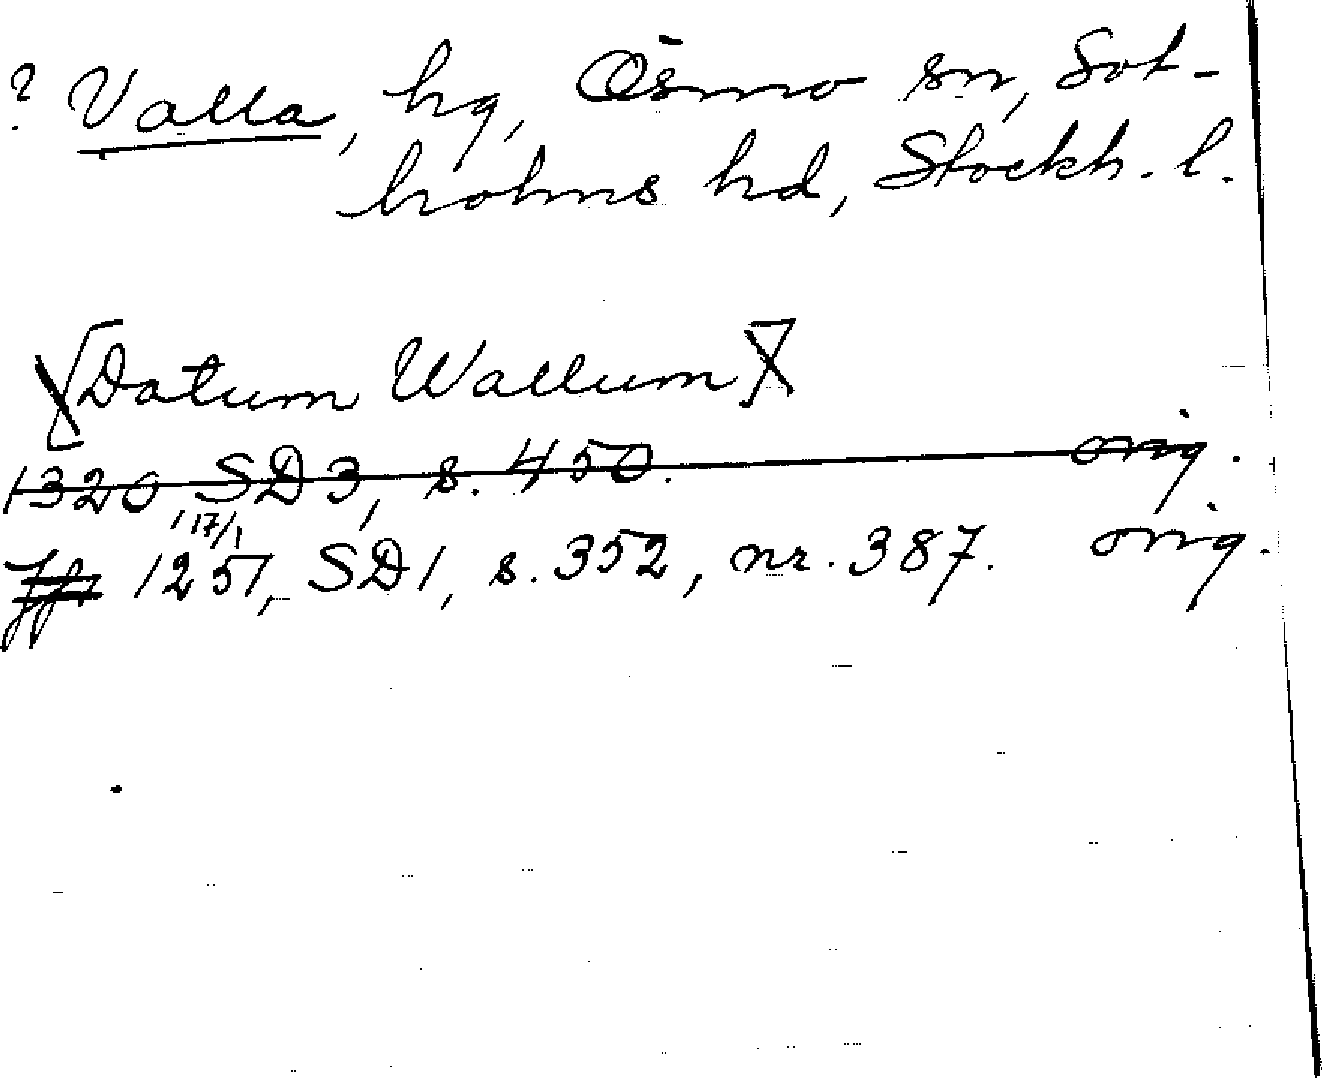 ? Valla, hg, Ösmo sn, Sot-
holms hd, Stockh. l.
[Datum Wallum]
1320, SD 3, s. 450. orig.
17/1
1251, SD 1, s. 352, nr. 387. orig.